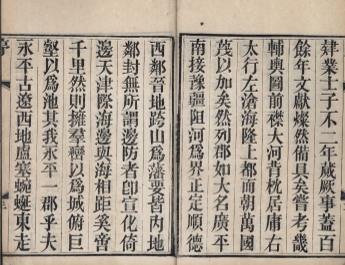 肆業士子不二年蕆厥事蓋百
餘年文獻燦然備具矣嘗考幾
輔輿圖前襟大河背枕居庸右
太行左滄海隆上都而朝萬國
蔑以加矣然列郡如大名廣平
南接豫疆阻河爲界正定順德
西鄰晉地跨山爲藩要皆內地
鄰封無所謂邊防者即宣化倚
邊天津際海邊與海相距奚啻
千里然則擁羣巒以爲城俯巨
壑以爲池其我永平一郡乎夫
永平古遼西地盧塞蜿蜒東走